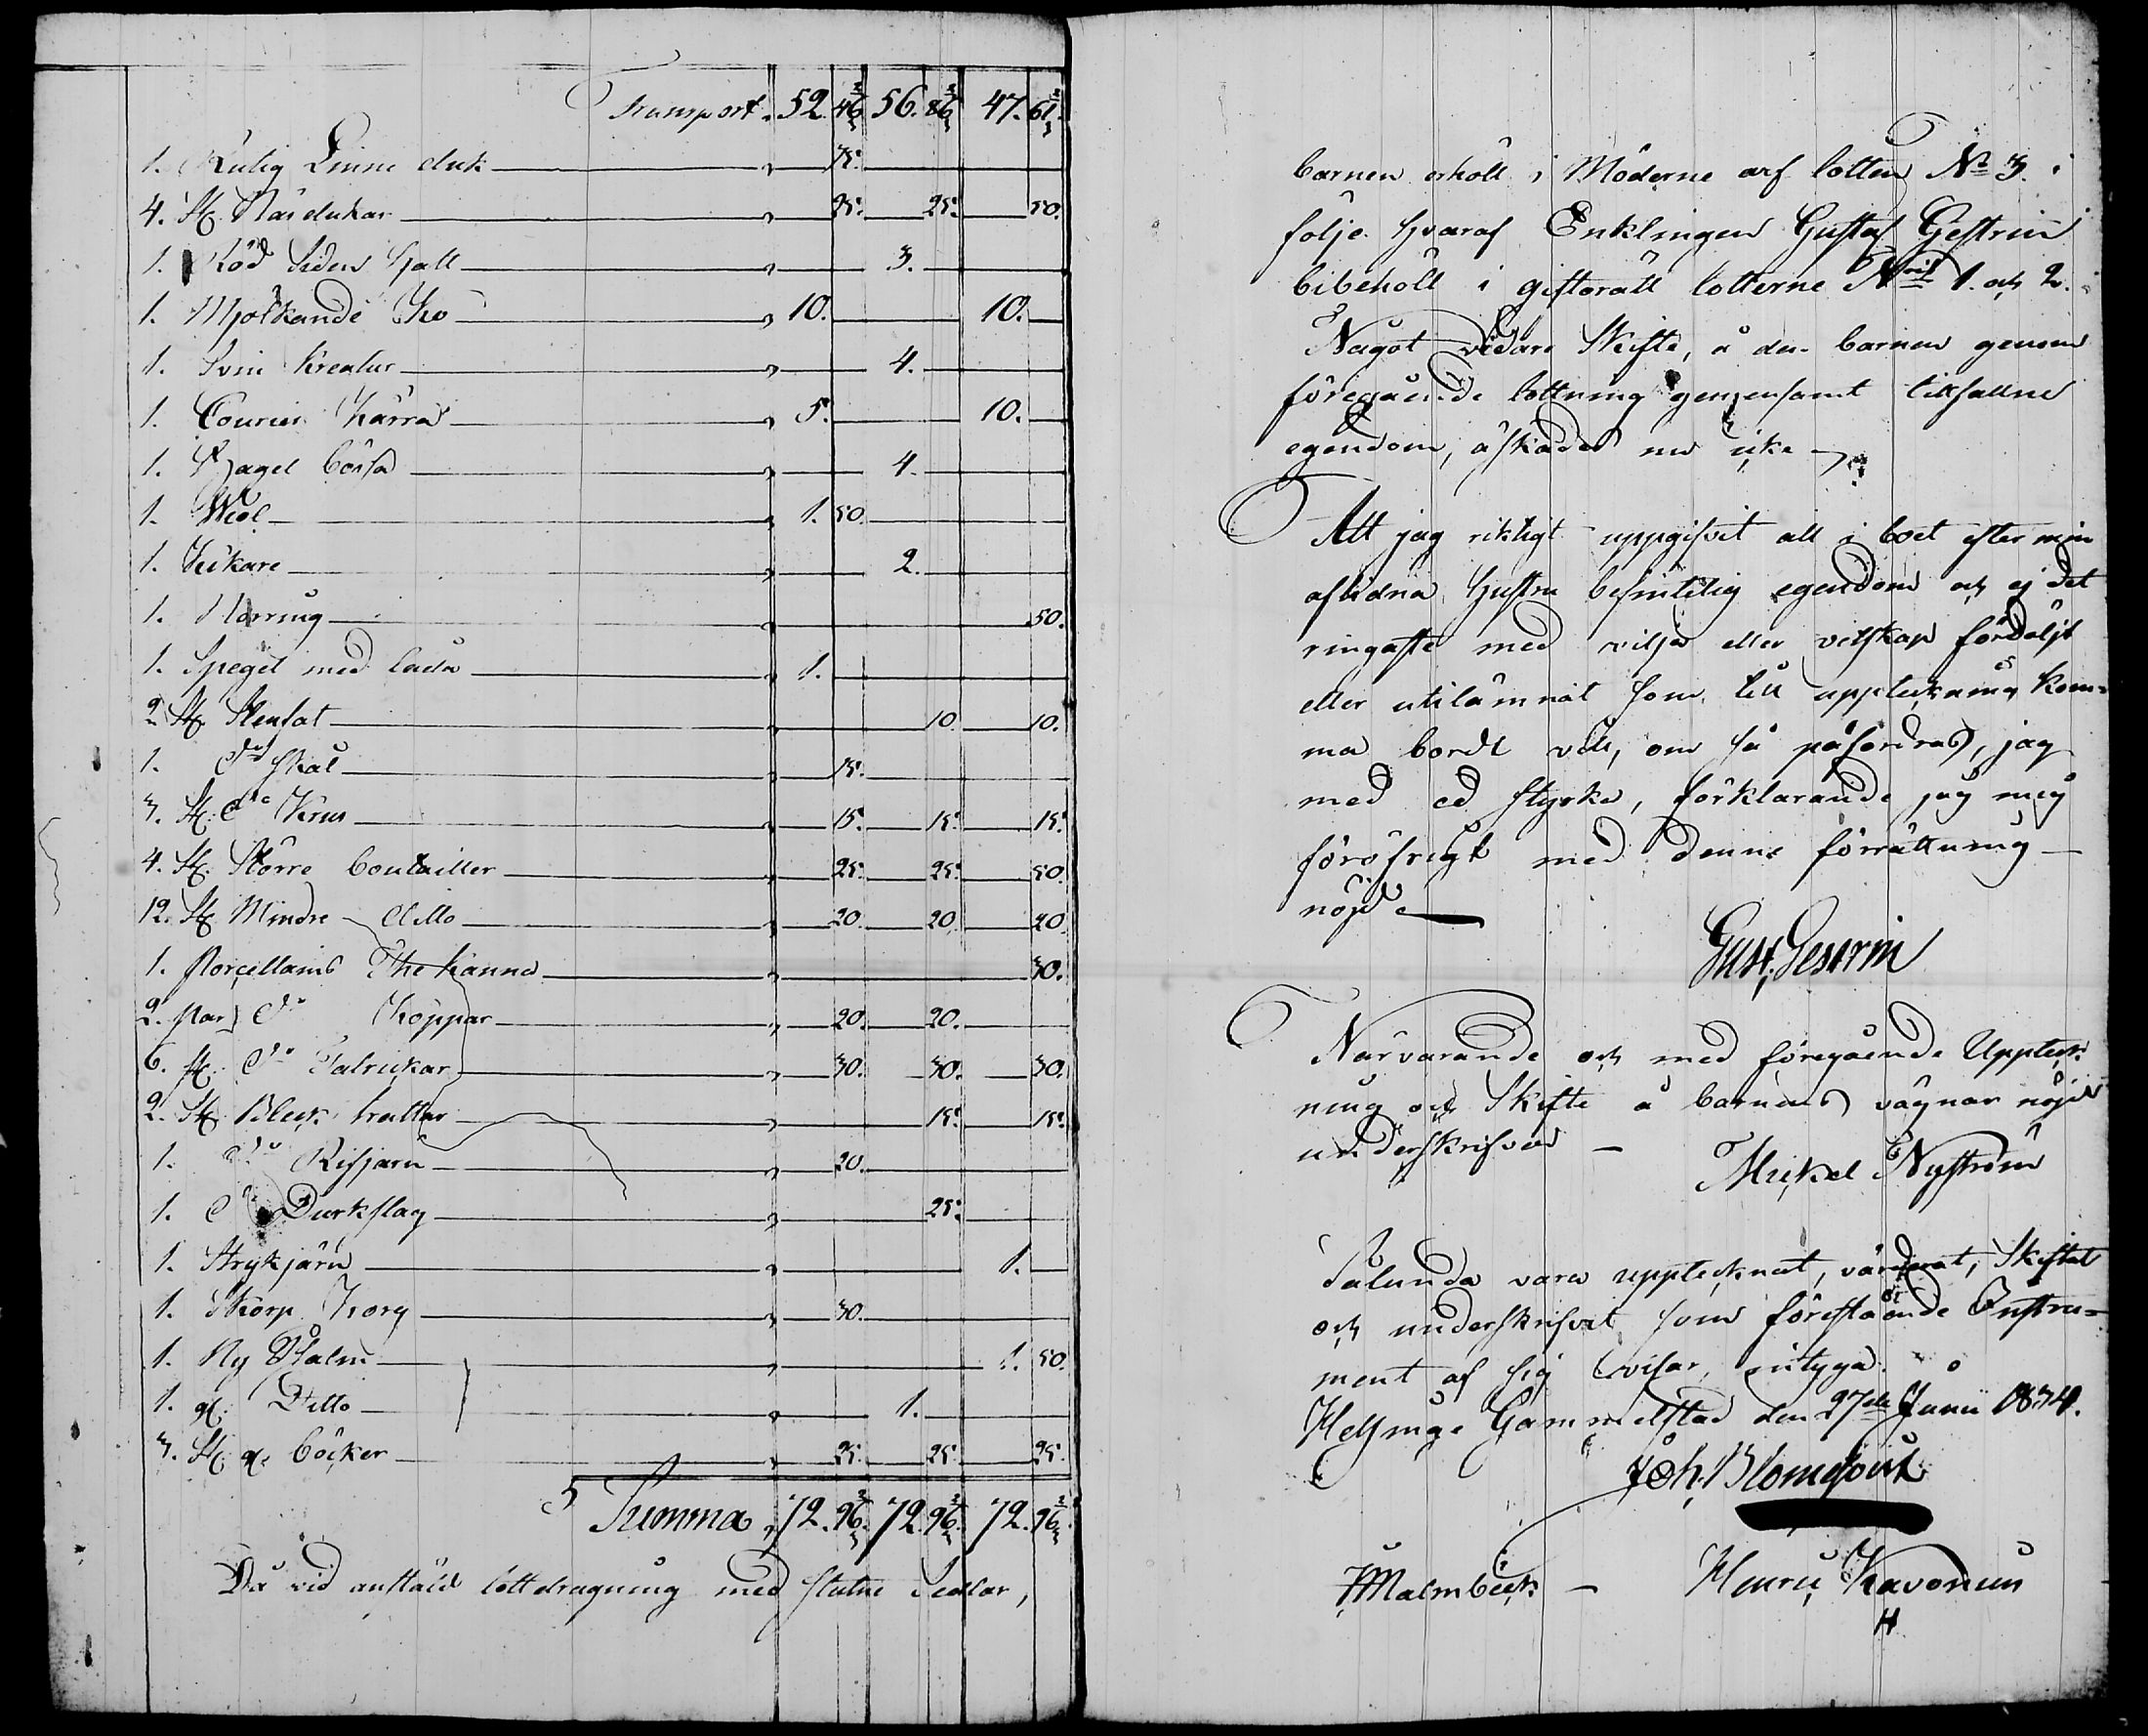 Transport. 52. 46 2/3 56. 86 2/3 47. 61 2/3
1. Rutig Linne duk 75.
4. St. Näsdukar 25. 25. 50.
1. Röd Siden Hatt 3.
1. Mjölkande Ko 10. 10.
1. Svin Kreatur 4.
1. Courier Kärra 5. 10.
1. Hagel bössa 4.
1. Wiol 1. 50.
1. Kikare 2.
1. 50.
1. Spegel med låda 1.
2 St. Stenfat 10 10.
1. Do skål 15.
3. St. Do Krus 15. 15. 15.
4. St. Större boutailler 25. 25. 50.
12. St. Mindre ditto 20. 20. 20.
1. Porcellains The kanna 30.
2. Par Do Koppar 20. 20.
6. st. Do Talrickar 30. 30. 30.
2. St. Bleck trattar 15. 15.
1. Do Rifjärn 20.
1. Do Durkslag 25.
1. Strykjärn 1.
1. Skorp Korg 30.
1. Ny Psalm 1. 50.
1. gl. Ditto 1.
3. St. gl. böcker 25. 25. 25.
Summa 72. 96 2/3 72. 96 2/3 72. 96 2/3
Då vid anstäld lottdragning med slutne Sedlar,
barnen erhöll i Möderne arf lotten No 3. i
följe hvaraf Enklingen Gustaf Gestrin
bibehöll i giftorätt lotterne Nris 1. och 2.
Något vidare Skifte, å den barnen genom
föregående lottning gemensamt tillfallne
egendom, åskades nu icke
Att jag riktigt uppgifvit all i boet efter min
aflidna Hustru befintelig egendom och ej det
ringaste med vilja eller vetskap fördöljt
eller utelämnat som till uppteckning kom=
ma bordt vill, om så påfordras, jag
med ed styrka, förklarande jag mig
föröfrigt med denne förrättning
nöjd
Gust. Gestrin
Närvarande och med föregående Uppteck=
ning och Skifte å barnens vägnar nöjd
underskrifver
Mickel Nyström
Sålunda vara upptecknat, värderat, Skiftat
och underskrifvet som förestående Instru=
ment af sig visar, intyga.
Helsinge Gammelstad den 27de Junii 1834.
Joh. Blomqvist
JMalmbeck — Henric Kavonius
H